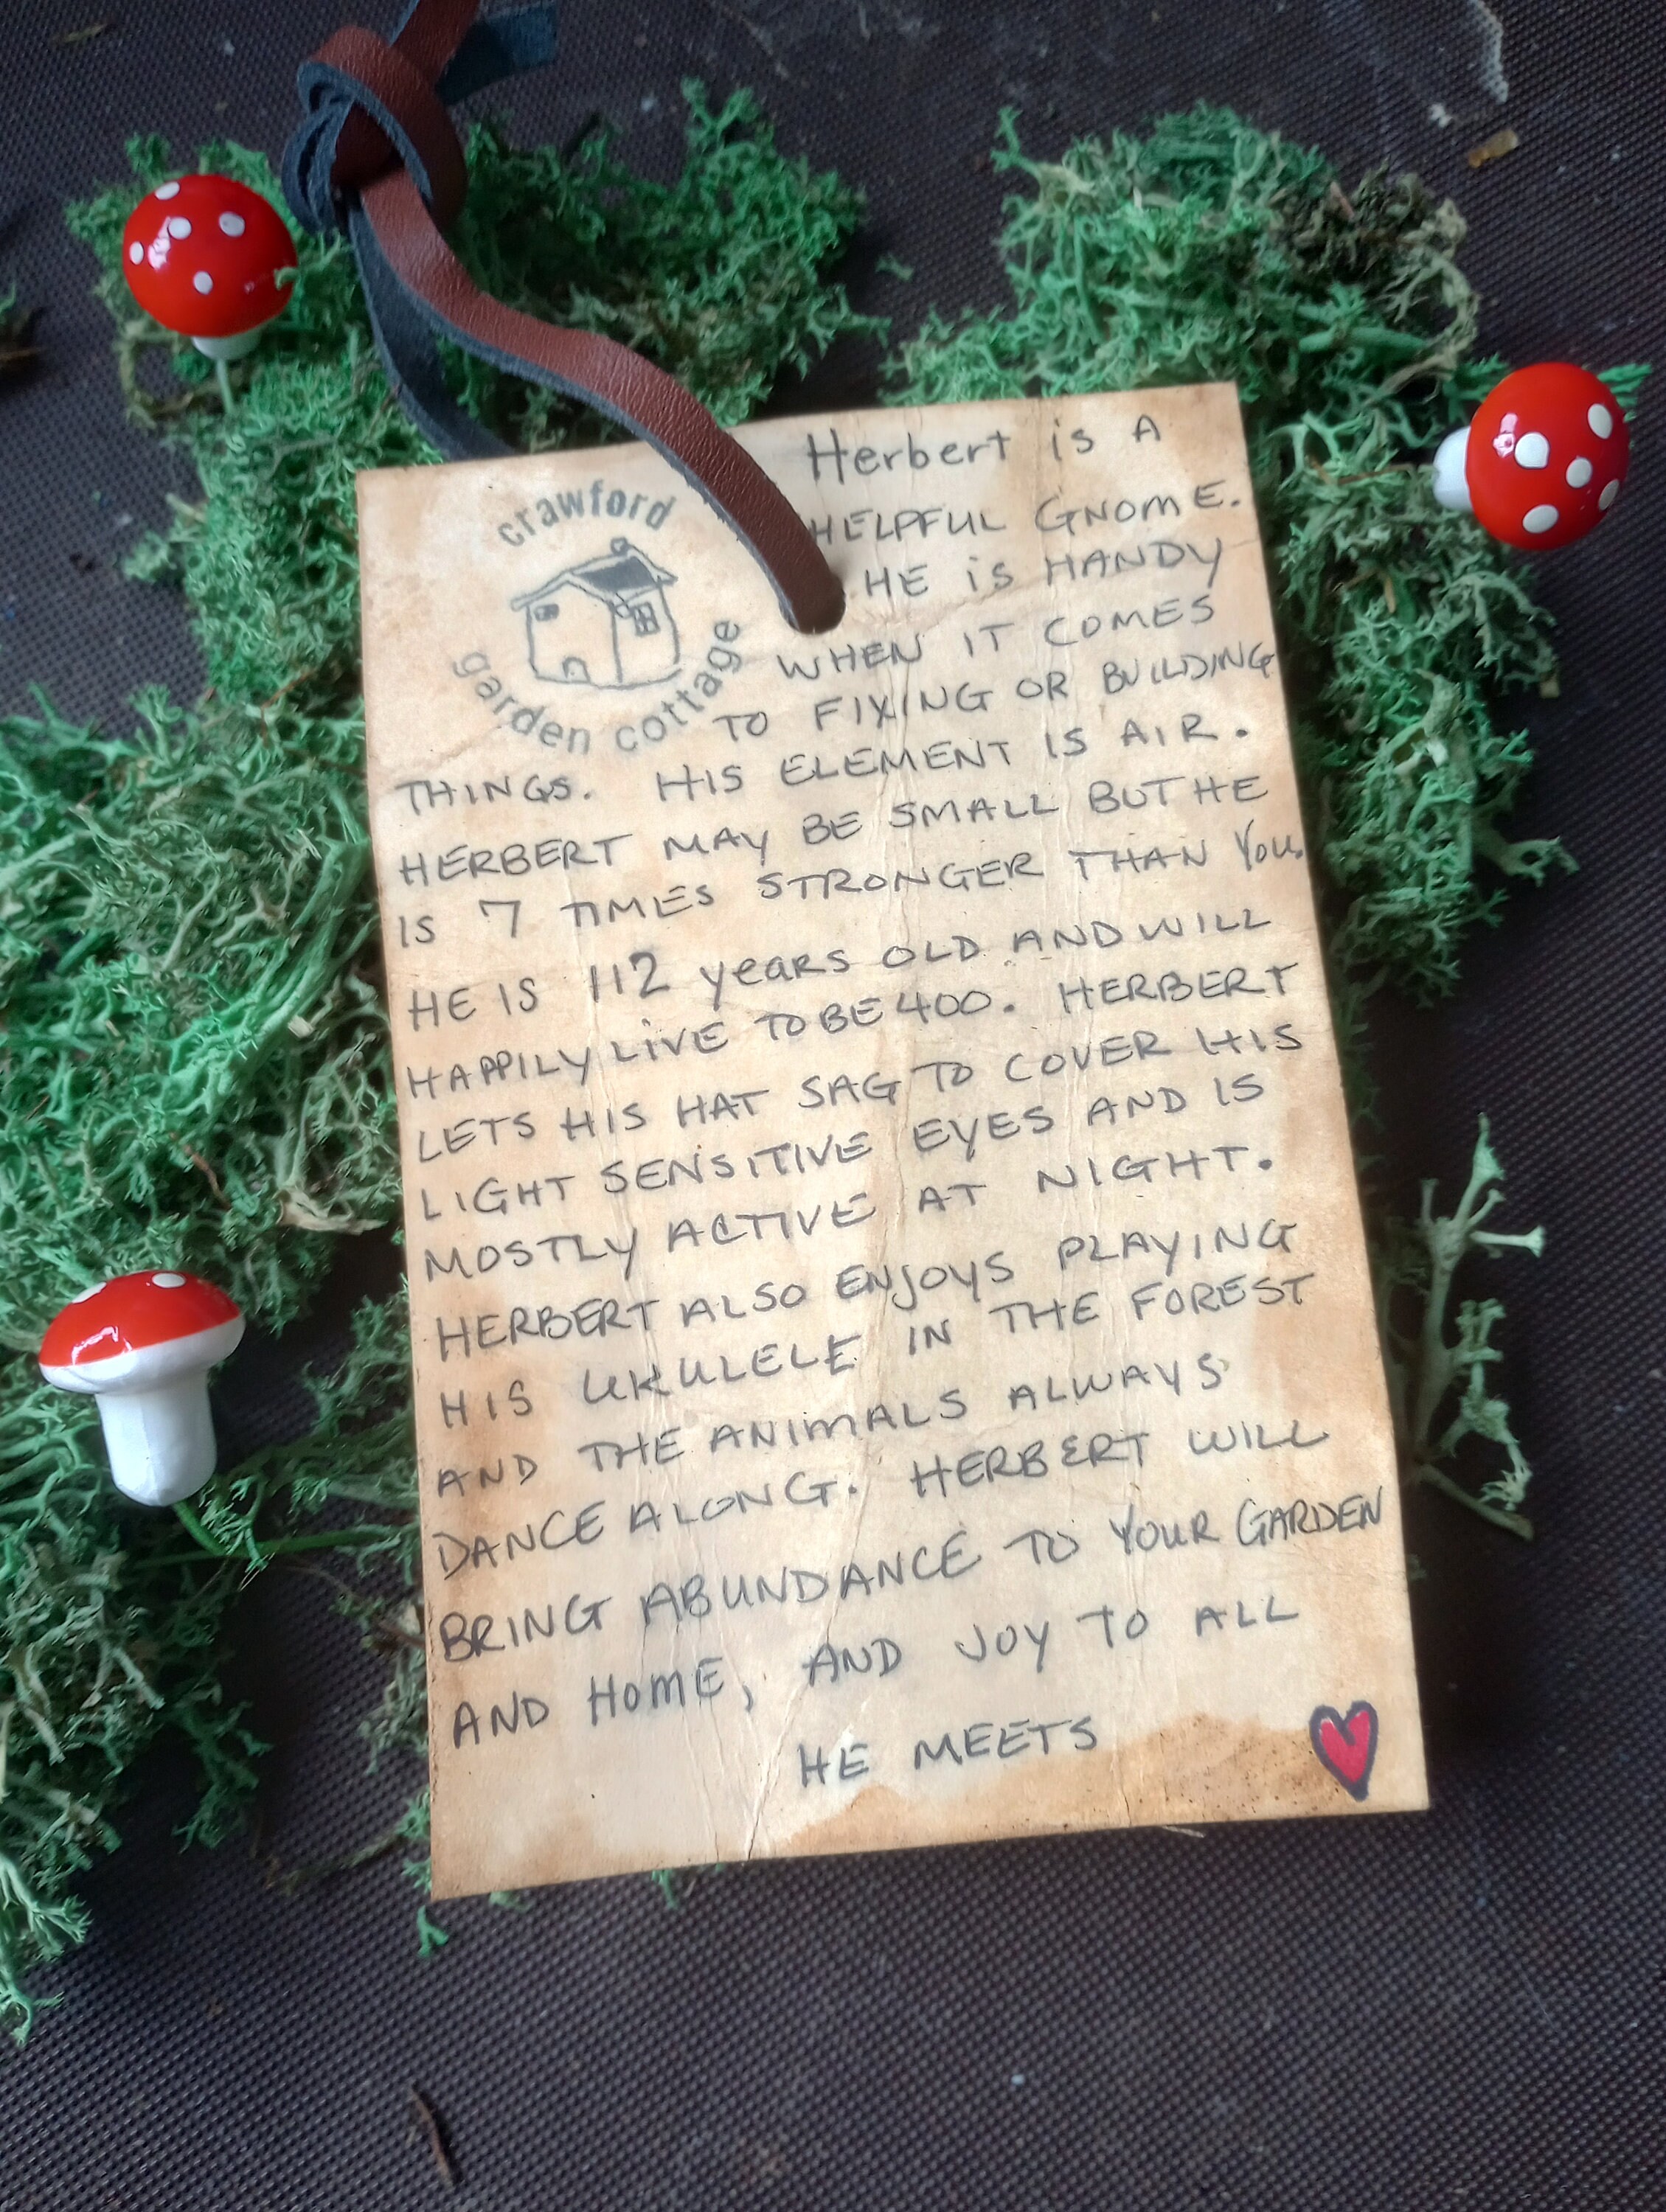 crawford
garden cottage
Herbert is A
HELPFUL GNOME.
HE is HANDY
WHEN IT COMES
TO FIXING OR BUILDING
THINGS. HIS ELEMENT IS AIR.
HERBERT MAY BE SMALL BUT HE
IS 7 TIMES STRONGER THAN YOU.
HE IS 112 years OLD AND WILL
HAPPILY LIVE TO BE 400. HERBERT
LETS HIS HAT SAG TO COVER HIS
LIGHT SENSITIVE EYES AND IS
MOSTLY ACTIVE AT NIGHT.
HERBERT ALSO ENJOYS PLAYING
HIS UKULELE IN THE FOREST
AND THE ANIMALS ALWAYS
DANCE ALONG. HERBERT WILL
BRING ABUNDANCE TO YOUR GARDEN
AND HOME, AND JOY TO ALL
HE MEETS